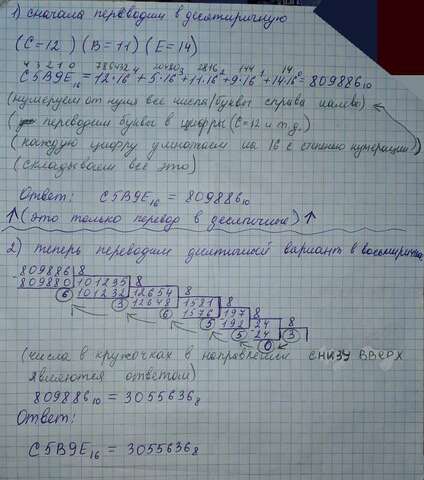 1) сначала переводим в десятиричную
(C=12) (B=11) (E=14)
4 3 2 1 0 786432 20480 2816 144 14
C5B9E₁₆ = 12·16⁴ + 5·16³ + 11·16² + 9·16¹ + 14·16⁰ = 809886₁₀
(нумеруем от нуля все числа/буквы справа налево)
( переводим буквы в цифры (C=12 и т.д.)
(каждую цифру умножаем на 16 с степенью нумерации)
(складываем всё это)
Ответ: C5B9E₁₆ = 809886₁₀
↑(это только перевод в десятичные)↑
2) теперь переводим десятичный вариант в восьмиричн
809886 | 8
809880 | 101235 | 8
6 101232 | 12654 | 8
3 12648 | 1581 | 8
6 1576 | 197 | 8
5 192 | 24 | 8
5 24 | 3
0
(числа в кружочках в направлении СНИЗУ ВВЕРХ
являются ответом)
809886₁₀ = 3055636₈
Ответ:
C5B9E₁₆ = 3055636₈